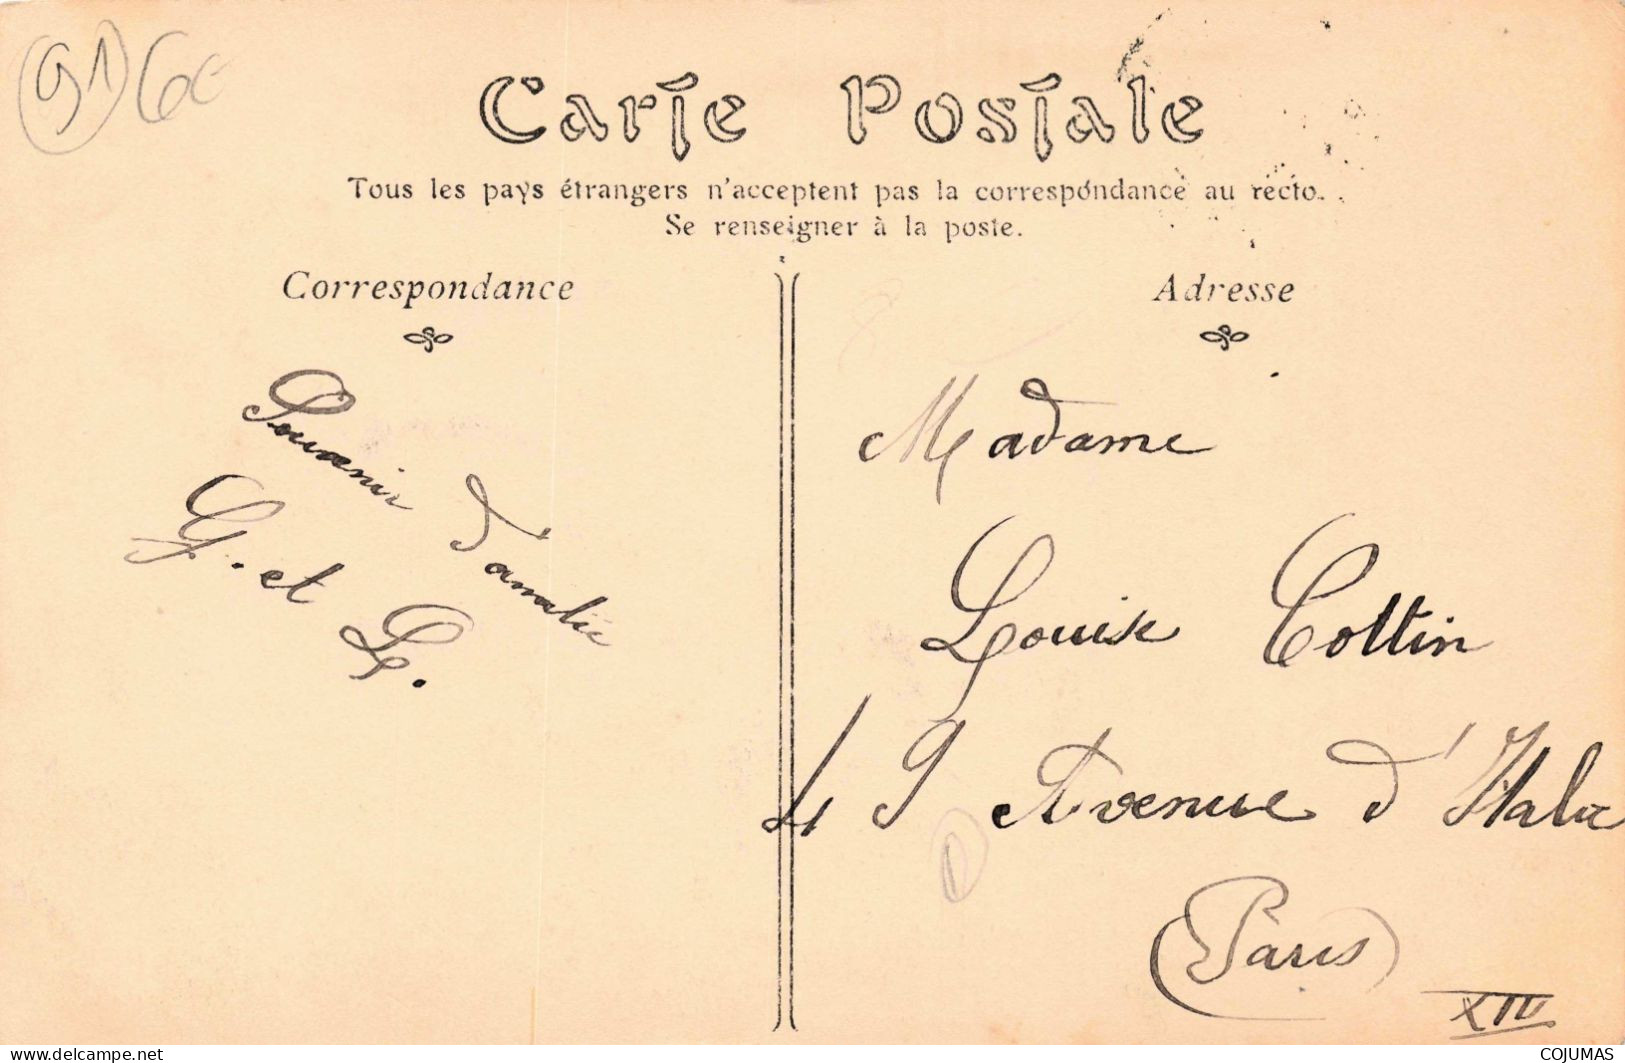 91 6€
Carte Postale
Tous les pays étrangers n'acceptent pas la correspondance au recto.
Se renseigner à la poste.
Correspondance
Souvenir d'amélie
G. et L.
Adresse
Madame
Louise Cottin
49 Avenue d'Italie
(Paris)
XIII
delcampe.net
COJUMAS